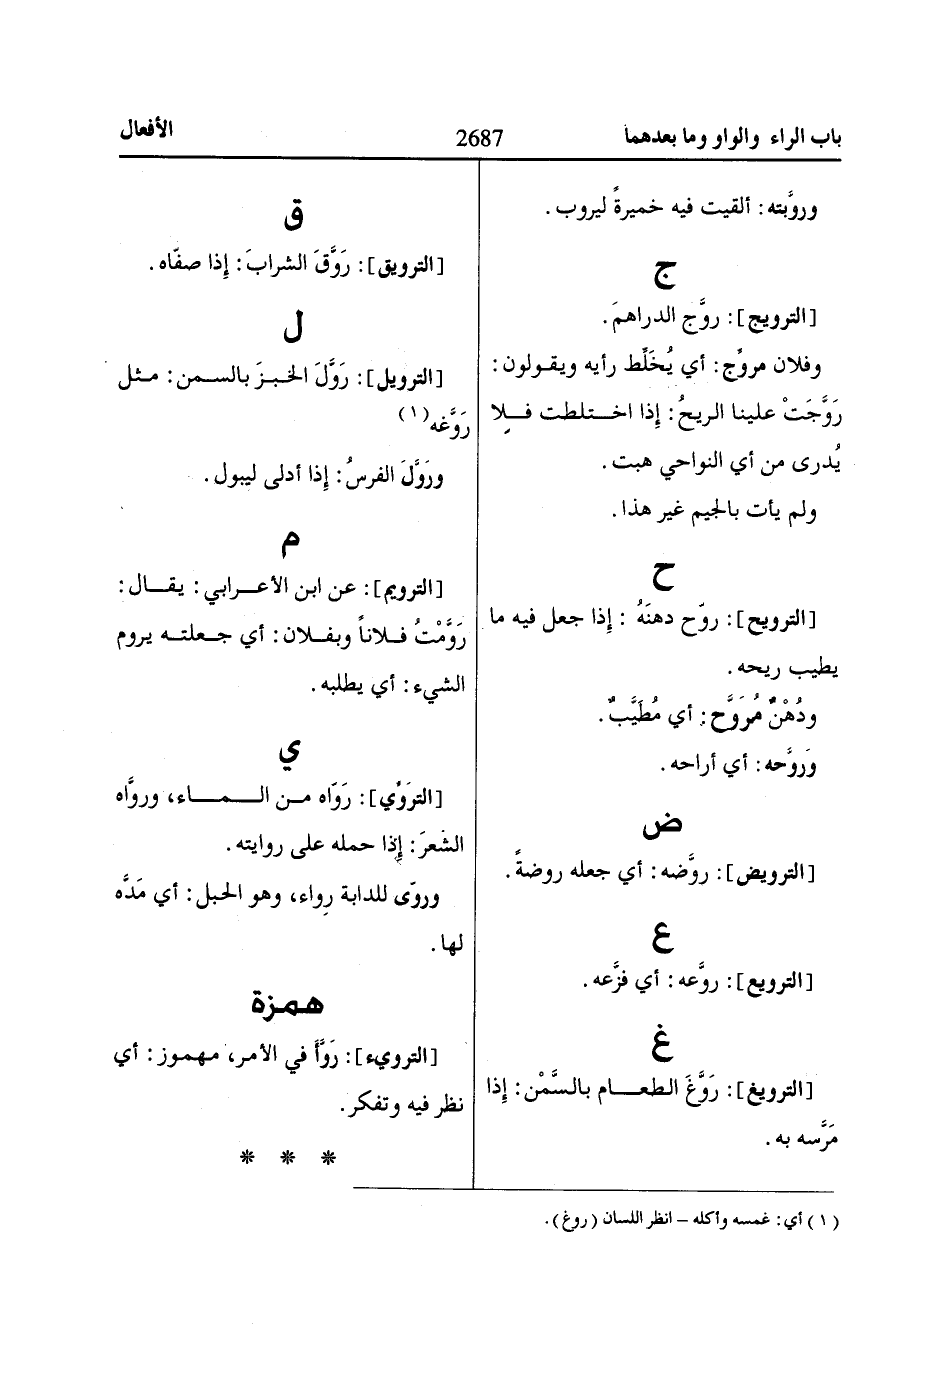 باب الراء والواو وما بعدهما
2687
الأفعال
وروَّبته: ألقيت فيه خميرةً ليروب.
ج
[الترويج]: روَّج الدراهمَ.
وفلان مروِّج: أي يُخَلِّط رأيه ويقولون:
رَوَّجَتْ علينا الريحُ: إذا اختلطت فلا
يُدرى من أي النواحي هبت.
ولم يأت بالجيم غير هذا.
ح
[الترويح]: روّح دهنَهُ: إذا جعل فيه ما
يطيب ريحه.
ودُهْنٌ مُرَوَّح: أي مُطَيَّبٌ.
وَروَّحه: أي أراحه.
ض
[الترويض]: روَّضه: أي جعله روضةً.
ع
[الترويع]: روَّعه: أي فزَّعه.
غ
[الترويغ]: رَوَّغَ الطعام بالسَّمْن: إذا
مَرَّسه به.
ق
[الترويق]: رَوَّقَ الشرابَ: إذا صفّاه.
ل
[الترويل]: رَوَّلَ الخبزَ بالسمن: مثل
رَوَّغه(١)
ورَوَّلَ الفرسُ: إذا أدلى ليبول.
م
[الترويم]: عن ابن الأعرابي: يقال:
رَوَّمْتُ فلاناً وبفلان: أي جعلته يروم
الشيء: أي يطلبه.
ي
[التروَّي]: رَوّاه من الماء، وروَّاه
الشعرَ: إذا حمله على روايته.
وروّى للدابة رِواء، وهو الحبل: أي مَدَّه
لها.
همزة
[الترويء]: رَوَّأَ في الأمر، مهموز: أي
نظر فيه وتفكر.
* * *
(١) أي: غمسه وأكله – انظر اللسان (روغ).